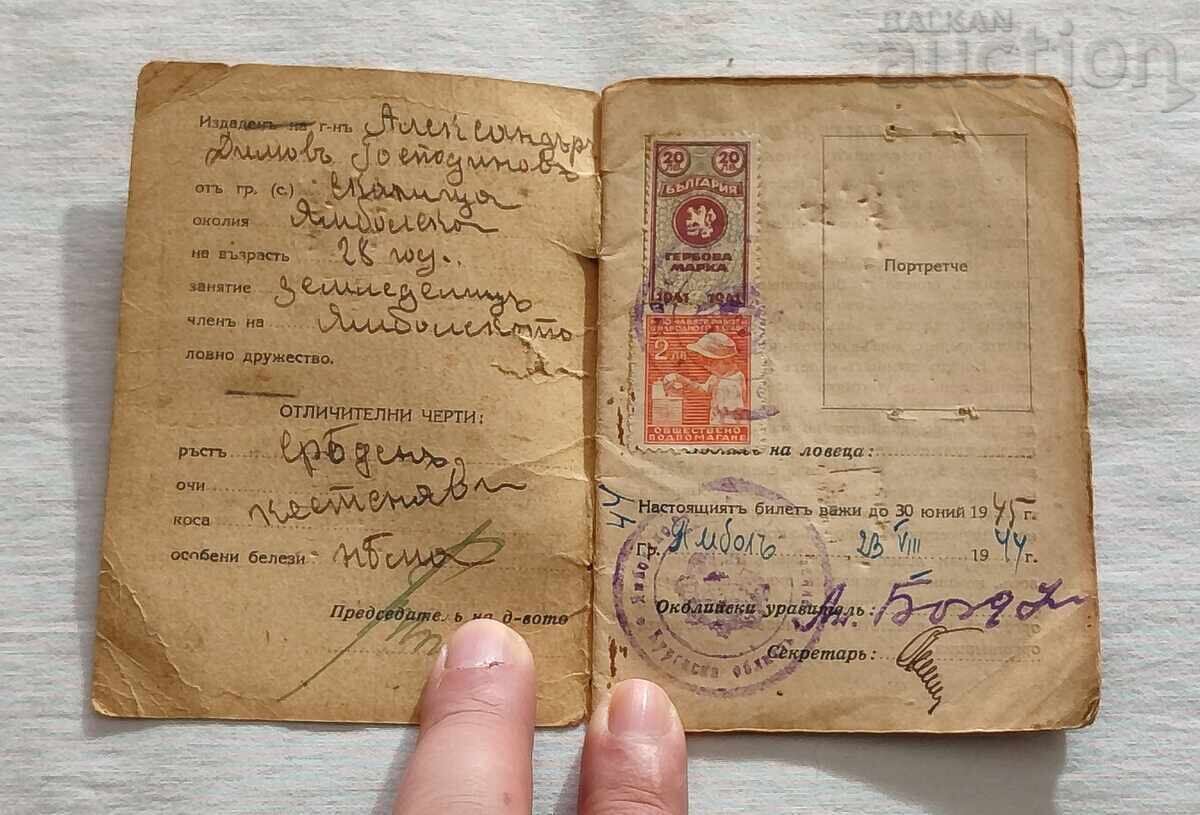 BALKAN
auction
Издаденъ на г-нъ Александъръ
Димовъ Господиновъ
отъ гр. (с.) Скалица
околия Ямболска
на възрасть 28 год.
занятие земледелецъ
членъ на Ямболското
ловно дружество.
ОТЛИЧИТЕЛНИ ЧЕРТИ:
ръстъ срѣденъ
очи
коса кестеняви
особени белези нѣма
Председатель на д-вото
20 ЛВ. 20 ЛВ.
БЪЛГАРИЯ
ГЕРБОВА
МАРКА
1941 1941
2 ЛВ.
ОБЩЕСТВЕНО
ПОДПОМАГАНЕ
Портретче
на ловеца:
Настоящиятъ билетъ важи до 30 юний 1945 г.
Гр. Ямболъ 23 VIII 1944 г.
Околийски управитель:
Секретарь:
Бургаска област